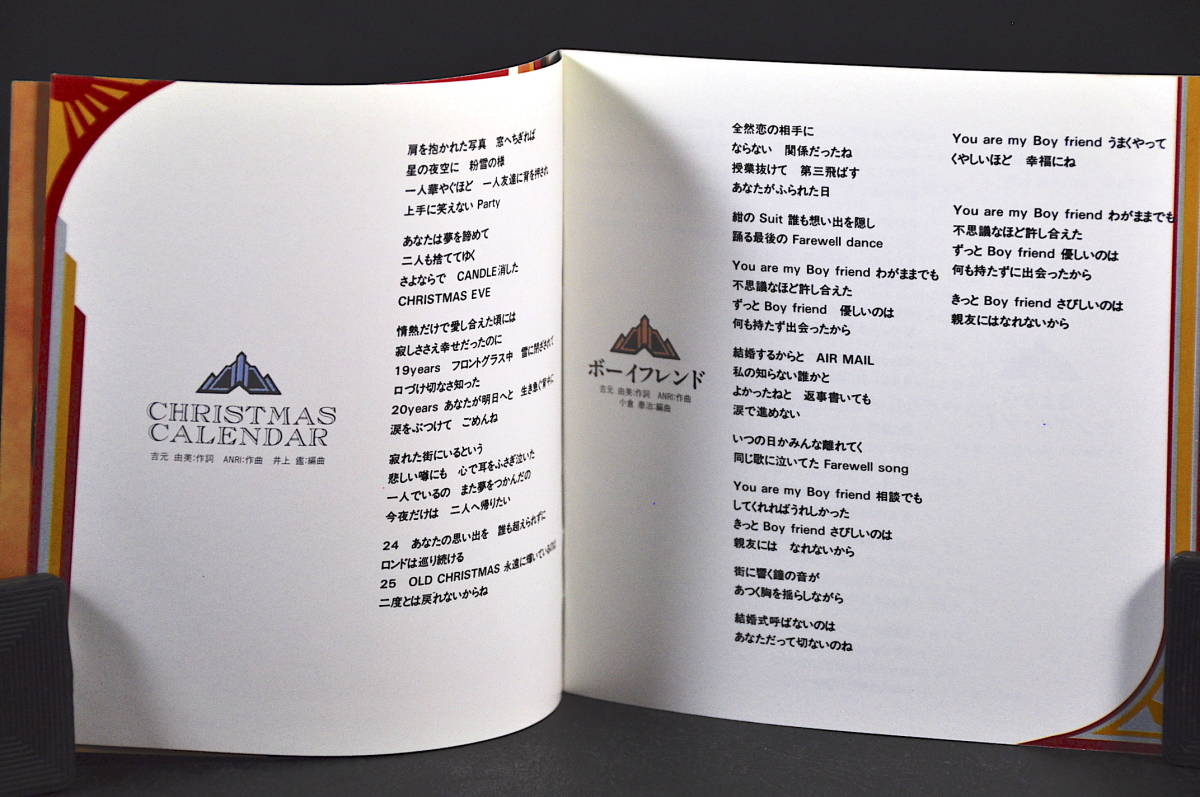 CHRISTMAS
CALENDAR
吉元 由美:作詞 ANRI:作曲 井上 鑑:編曲
肩を抱かれた写真 窓へちぎれば
星の夜空に 粉雪の様
一人華やぐほど 一人友達に背を押され
上手に笑えない Party
あなたは夢を諦めて
二人も捨ててゆく
さよならで CANDLE消した
CHRISTMAS EVE
情熱だけで愛し合えた頃には
寂しささえ幸せだったのに
19years フロントグラス中 雪に閉ざされて
口づけ切なさ知った
20years あなたが明日へと 生き急ぐ背中に
涙をぶつけて ごめんね
寂れた街にいるという
悲しい噂にも 心で耳をふさぎ泣いた
一人でいるの また夢をつかんだの
今夜だけは 二人へ帰りたい
24 あなたの思い出を 誰も超えられずに
ロンドは巡り続ける
25 OLD CHRISTMAS 永遠に輝いているのは
二度とは戻れないからね
ボーイフレンド
吉元 由美:作詞 ANRI:作曲
小倉 泰治:編曲
全然恋の相手に
ならない 関係だったね
授業抜けて 第三飛ばす
あなたがふられた日
紺の Suit 誰も想い出を隠し
踊る最後の Farewell dance
You are my Boy friend わがままでも
不思議なほど許し合えた
ずっと Boy friend 優しいのは
何も持たず出会ったから
結婚するからと AIR MAIL
私の知らない誰かと
よかったねと 返事書いても
涙で進めない
いつの日かみんな離れてく
同じ歌に泣いてた Farewell song
You are my Boy friend 相談でも
してくれればうれしかった
きっと Boy friend さびしいのは
親友には なれないから
街に響く鐘の音が
あつく胸を揺らしながら
結婚式呼ばないのは
あなただって切ないのね
You are my Boy friend うまくやって
くやしいほど 幸福にね
You are my Boy friend わがままでも
不思議なほど許し合えた
ずっと Boy friend 優しいのは
何も持たずに出会ったから
きっと Boy friend さびしいのは
親友にはなれないから